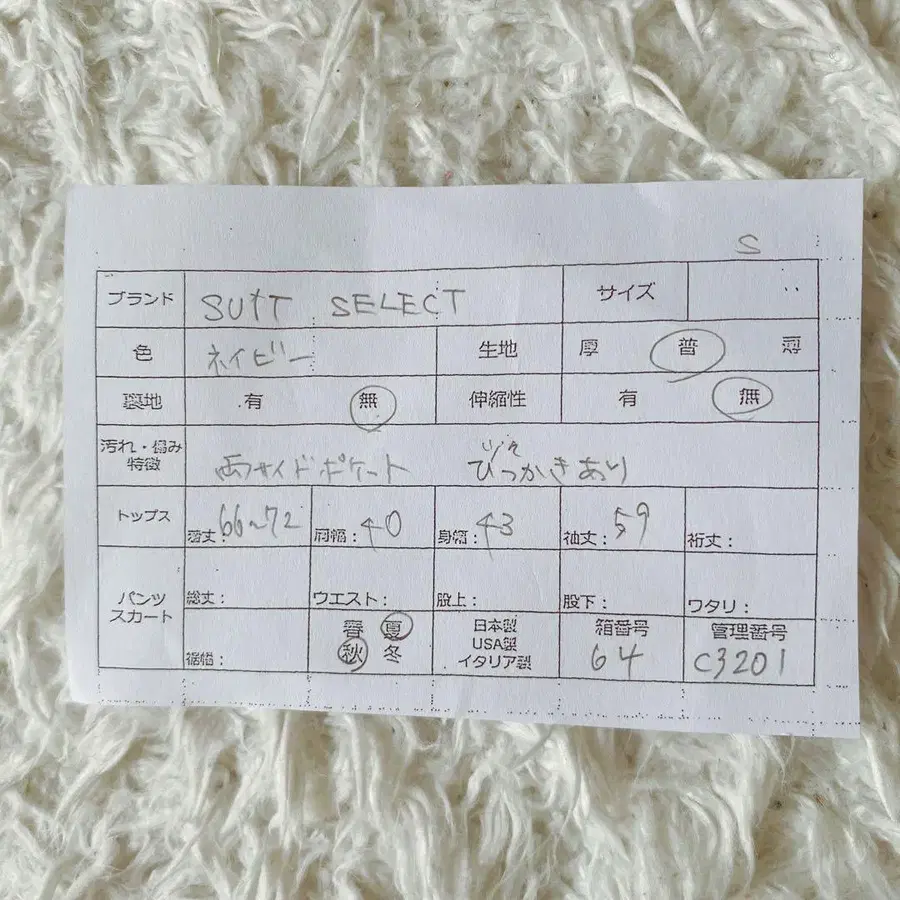 S
ブランド SUIT SELECT サイズ
色 ネイビー 生地 厚 普 薄
裏地 有 無 伸縮性 有 無
汚れ・傷み
特徴 両サイドポケット ひっかきあり
トップス 着丈:66~72 肩幅:40 身幅:43 袖丈:59 裄丈:
パンツ
スカート 総丈: ウエスト: 股上: 股下: ワタリ:
裾幅: 春 夏 秋 冬 日本製 USA製 イタリア製 箱番号 64 管理番号 C3201